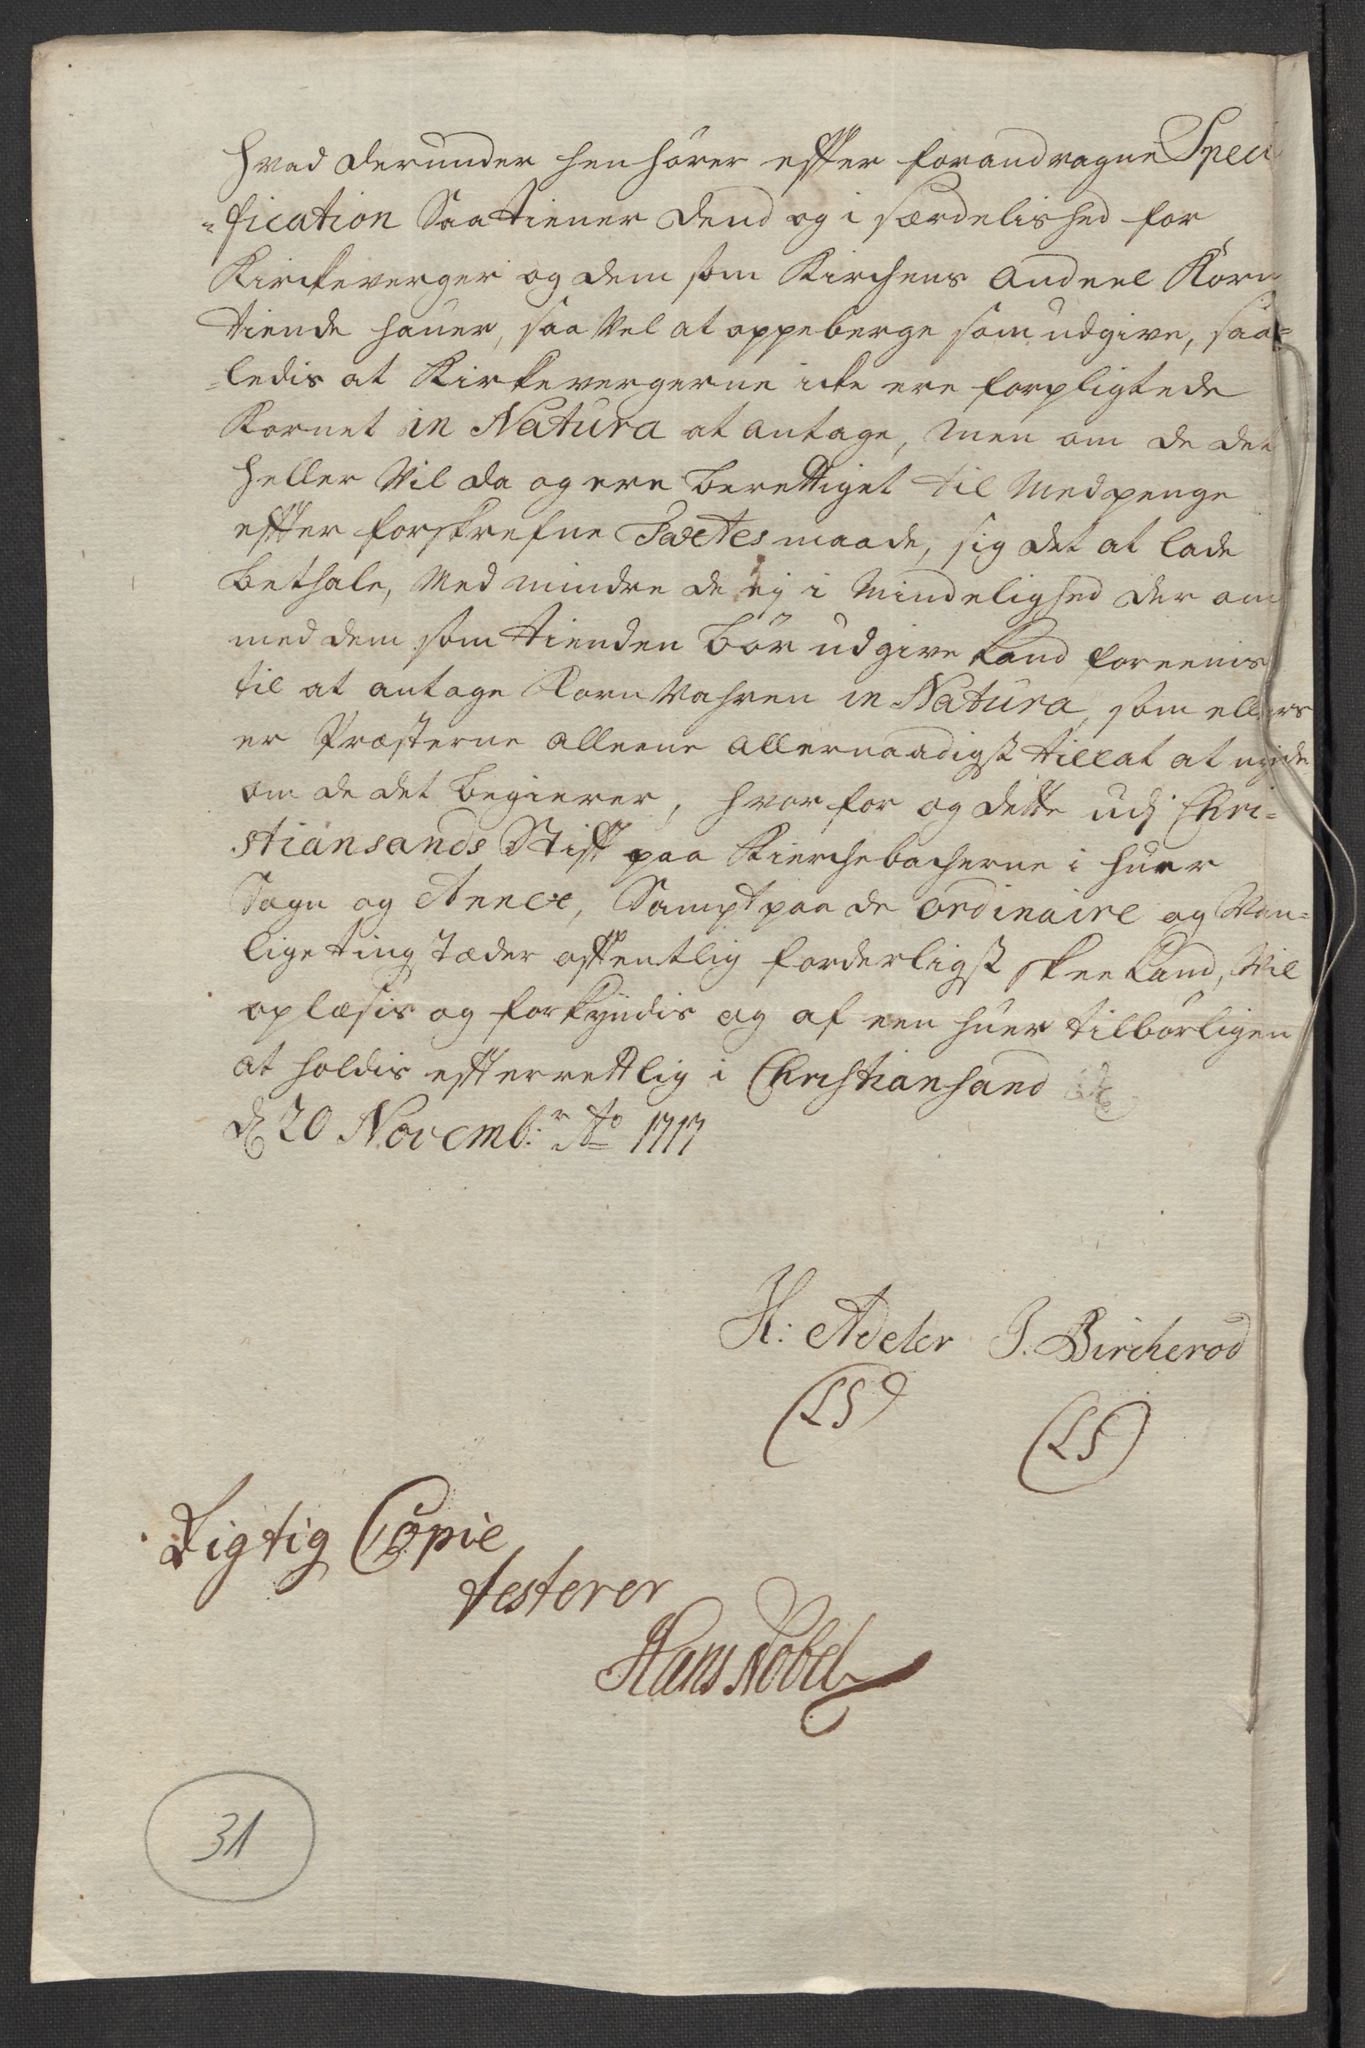 hvad derunder henhörer efter forandragne Speci
=fication Saa tiener dend og i særdelished for
Kirckeverger og dem som Kirchens Andeel Korn
tiende hauer, saa vel at oppeberge som udgive, saa=
=ledis at Kirkevergerne icke ere forpligtede
Kornet in Natura at antage, men om de det
heller vil da og ere berettiget til med penge
effter forskrefne Taxtes maade, sig det at lade
bethale, Med mindre de ej i Mindelighed der om
med dem som tienden bör udgive kand foreenis
til at antage Korn Vahren in Natura, som ellers
er Præsterne alleene allernaadigst tillat at nyde
om de det begierer, hvorfor og dette udj Chri=
stiansands Stift paa Kierchebacherne i huer
Sogn og Annex, Sampt paa de ordinaire og Van=
lige ting stæder offentlig forderligst skee kand, Vil
oplæsis og forkyndis og af een huer tilbörligen
at holdis effterrettlig i Christiansand
d 20 Novemb:r Ao 1717
H: Adeler J. Bircherod
(LS) (LS)
Rigtig Copie
testerer
Hans Nobel
31